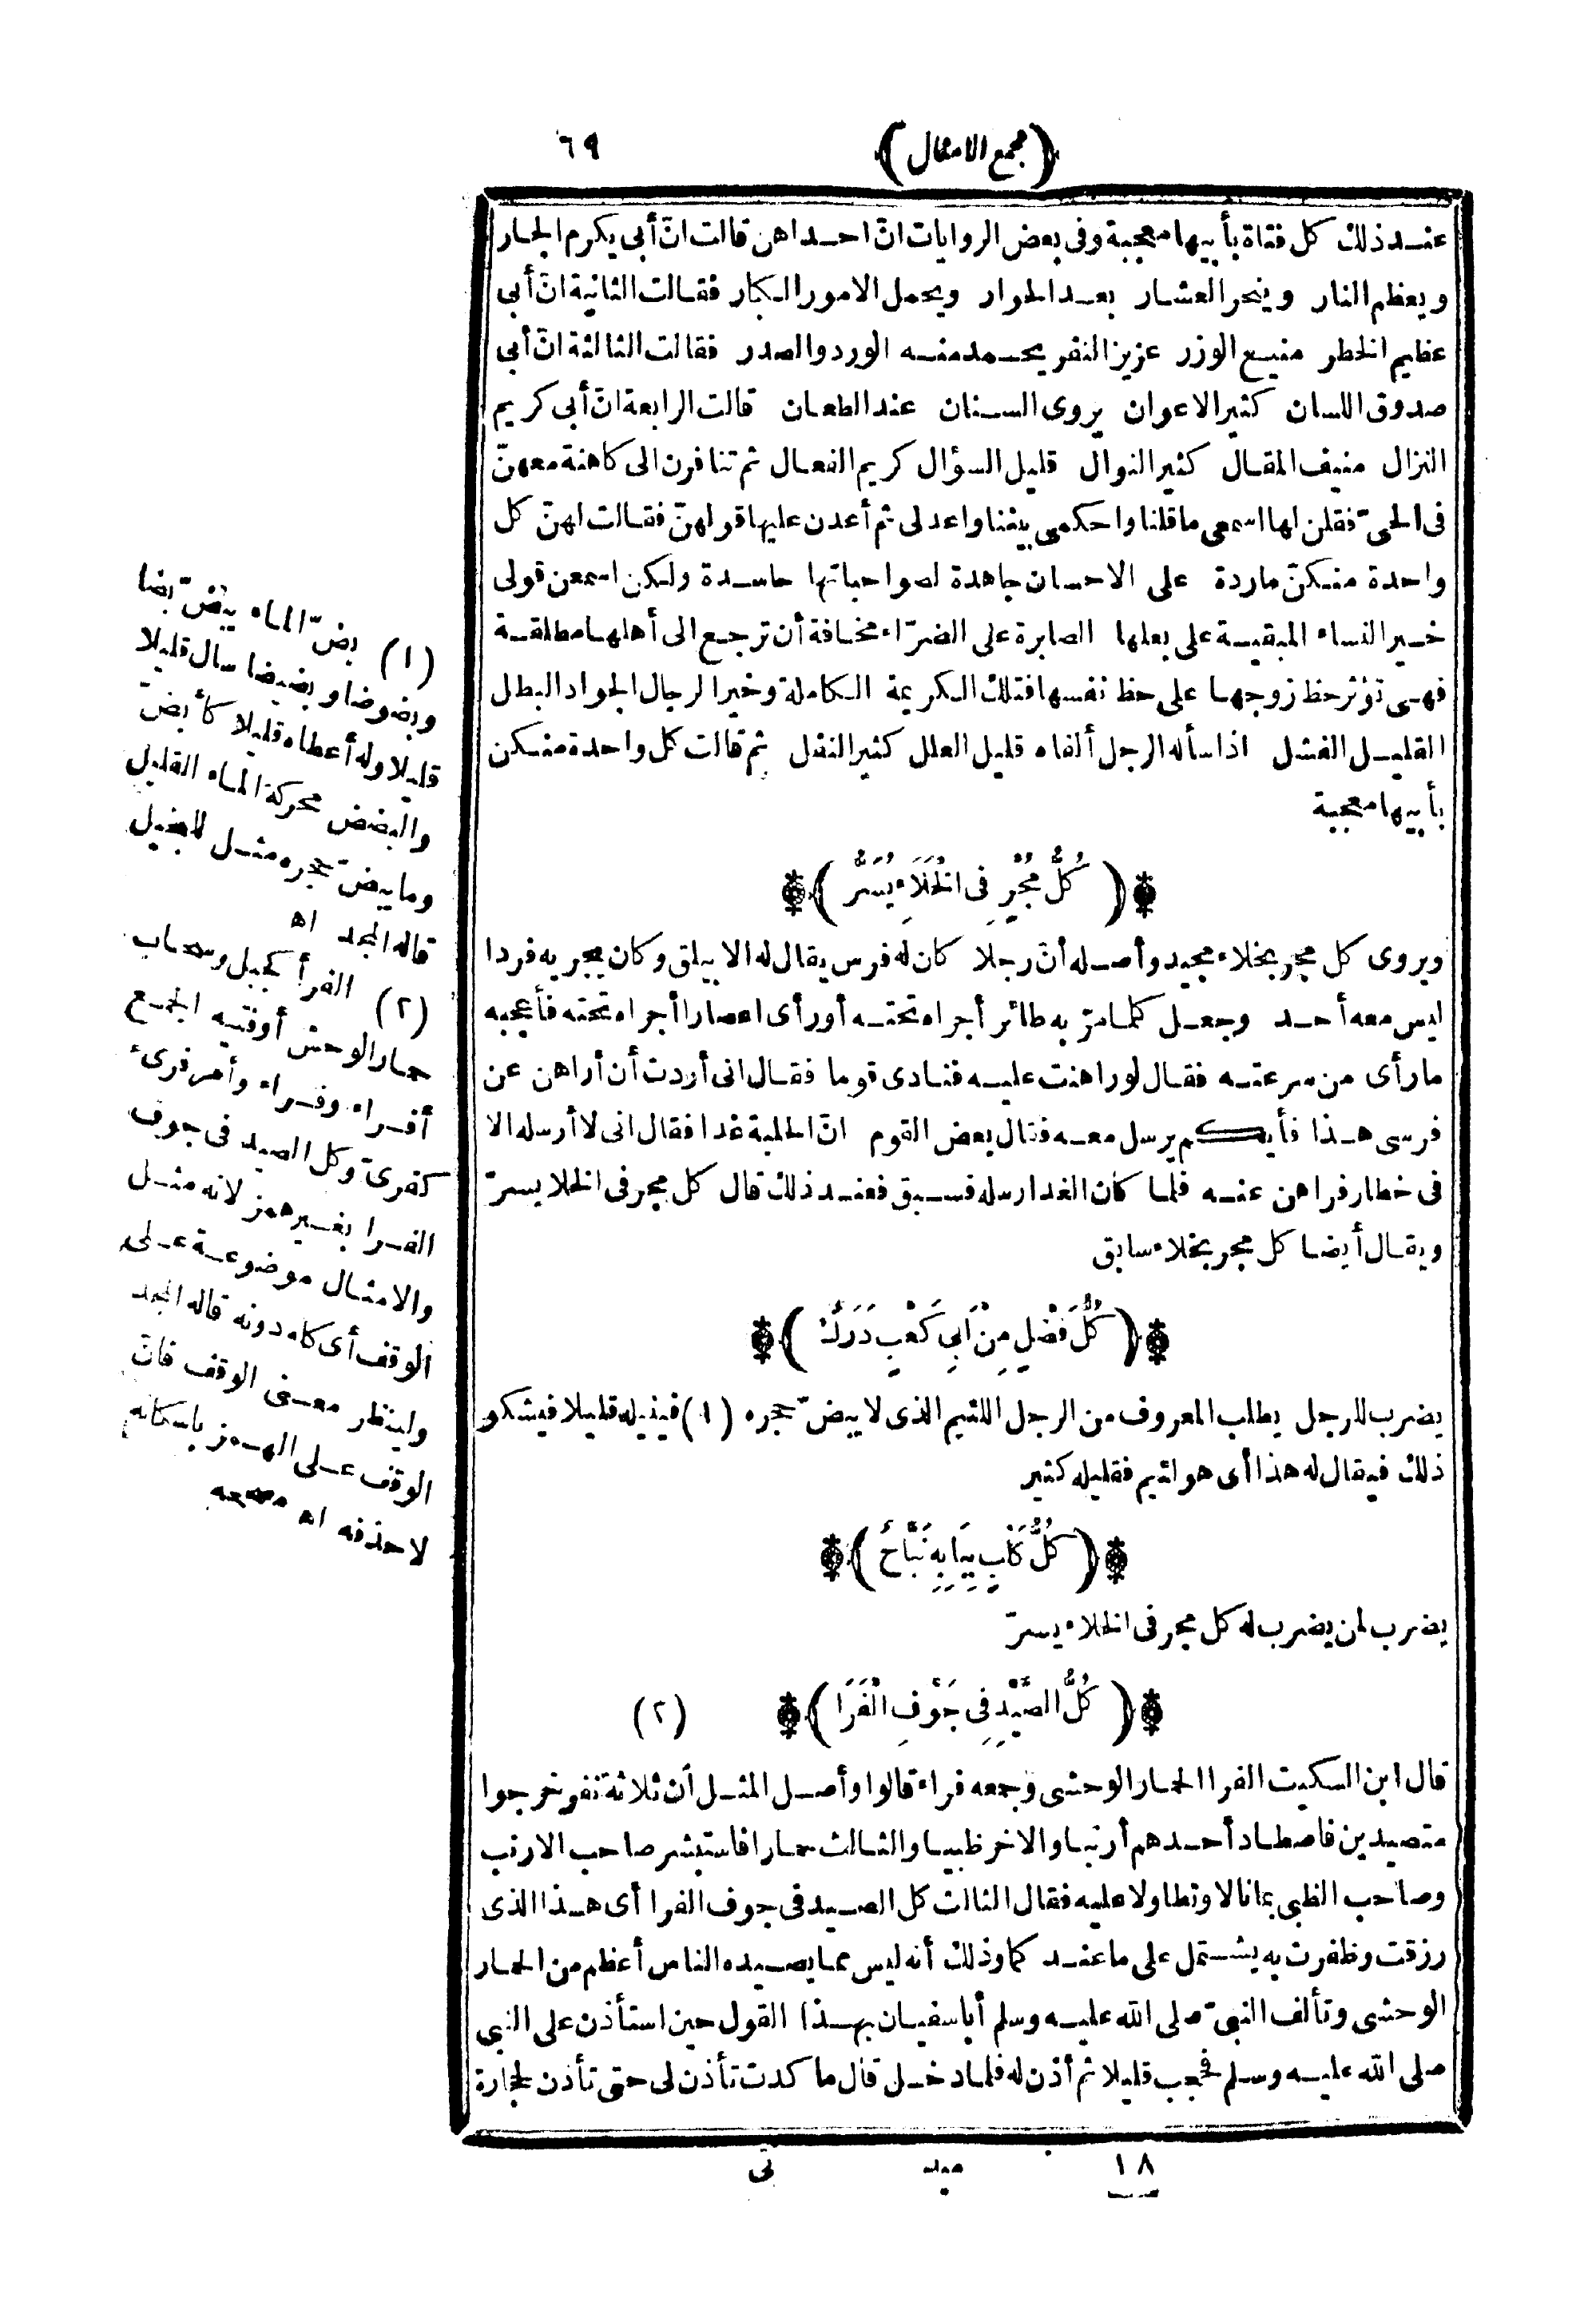 (مجمع الامثال) ٦٩
عند ذلك كل فتاة بأبيها معجبة وفى بعض الروايات انّ احداهن قالت انّ أبى يكرم الجار
ويعظم النار وينحر العشار بعد الحوار ويحمل الامور الكبار فقالت الثانية انّ أبى
عظيم الخطر منيع الوزر عزيز النفر يحمد منه الورد والصدر فقالت الثالثة انّ أبى
صدوق اللسان كثير الاعوان يروى السنان عند الطعان قالت الرابعة انّ أبى كريم
النزال منيف المقال كثير النوال قليل السؤال كريم الفعال ثم تنافرن الى كاهنة معهنّ
فى الحىّ فقلن لها اسمعى ما قلنا واحكمى بيننا واعدلى ثم أعدن عليها قولهنّ فقالت لهنّ كل
واحدة منكنّ ماردة على الاحسان جاهدة لصواحباتها حاسدة ولكن اسمعن قولى
خير النساء المبقية على بعلها الصابرة على الضرّاء مخافة أن ترجع الى أهلها مطلقة
فهى تؤثر حظ زوجها على حظ نفسها فتلك الكريمة الكاملة وخير الرجال الجواد البطل
القليل الفشل اذا سأله الرجل ألفاه قليل العلل كثير النفل ثم قالت كل واحدة منكن
بأبيها معجبة
(كُلُّ مُجْرٍ فِى الْخَلَاءِ يُسَرُّ)
ويروى كل مجر بخلاء مجيد وأصله أنّ رجلا كان له فرس يقال له الابيلق وكان يجريه فردا
ليس معه أحد وجعل كلما مرّ به طائر أجراه تحته أو رأى اعصارا أجراه تحته فأعجبه
ما رأى من سرعته فقال لو راهنت عليه فنادى قوما فقال انى أردت أن أراهن عن
فرسى هذا فأيكم يرسل معه فقال بعض القوم انّ الحلبة غدا فقال انى لا أرسله الا
فى خطار فراهن عنه فلما كان الغد ارسله فسبق فعند ذلك قال كل مجر فى الخلا يسرّ
ويقال أيضا كل مجر بخلاء سابق
(كُلُّ فَضْلٍ مِنْ اَبِى كَعْبٍ دَرَكْ)
يضرب للرجل يطلب المعروف من الرجل اللئيم الذى لا يبضّ حجره (١) فينيله قليلا فيشكو
ذلك فيقال له هذا أى هو لئيم فقليله كثير
(كُلُّ كَلْبٍ بِبَابِهِ نَبَّاحٌ)
يضرب لمن يضرب له كل مجر فى الخلاء يسرّ
(كُلُّ الصَّيْدِ فِى جَوْفِ الْفَرَا) (٢)
قال ابن السكيت الفرا الحمار الوحشى وجمعه فراء قالوا وأصل المثل أن ثلاثة نفر خرجوا
متصيدين فاصطاد أحدهم أرنبا والاخر ظبيا والثالث حمارا فاستبشر صاحب الارنب
وصاحب الظبى بما نالا وتطاولا عليه فقال الثالث كل الصيد فى جوف الفرا أى هذا الذى
رزقت وظفرت به يشتمل على ما عندكما وذلك أنه ليس مما يصيده الناس أعظم من الحمار
الوحشى وتألف النبىّ صلى الله عليه وسلم أبا سفيان بهذا القول حين استأذن على النبى
صلى الله عليه وسلم فحجب قليلا ثم أذن له فلما دخل قال ما كدت تأذن لى حتى تأذن لحجارة
١٨ ميد نى
(١) بضّ الماء يبضّ بضا
وبضوضا وبضيضا سال قليلا
قليلا وله أعطاه قليلا كأبضّ
والبضض محركة الماء القليل
وما يبضّ حجره مثل للبخيل
قاله المجد اه
(٢) الفرأ كجبل وسحاب
حمار الوحش أو فتيه الجمع
أفراء وفراء وأمر فرىء
كفرىّ وكل الصيد فى جوف
الفرا بغير همز لانه مثل
والامثال موضوعة على
الوقف أى كله دونه قاله المجد
ولينظر معنى الوقف فانّ
الوقف على الهمز باسكانه
لا حذفه اه مصححه